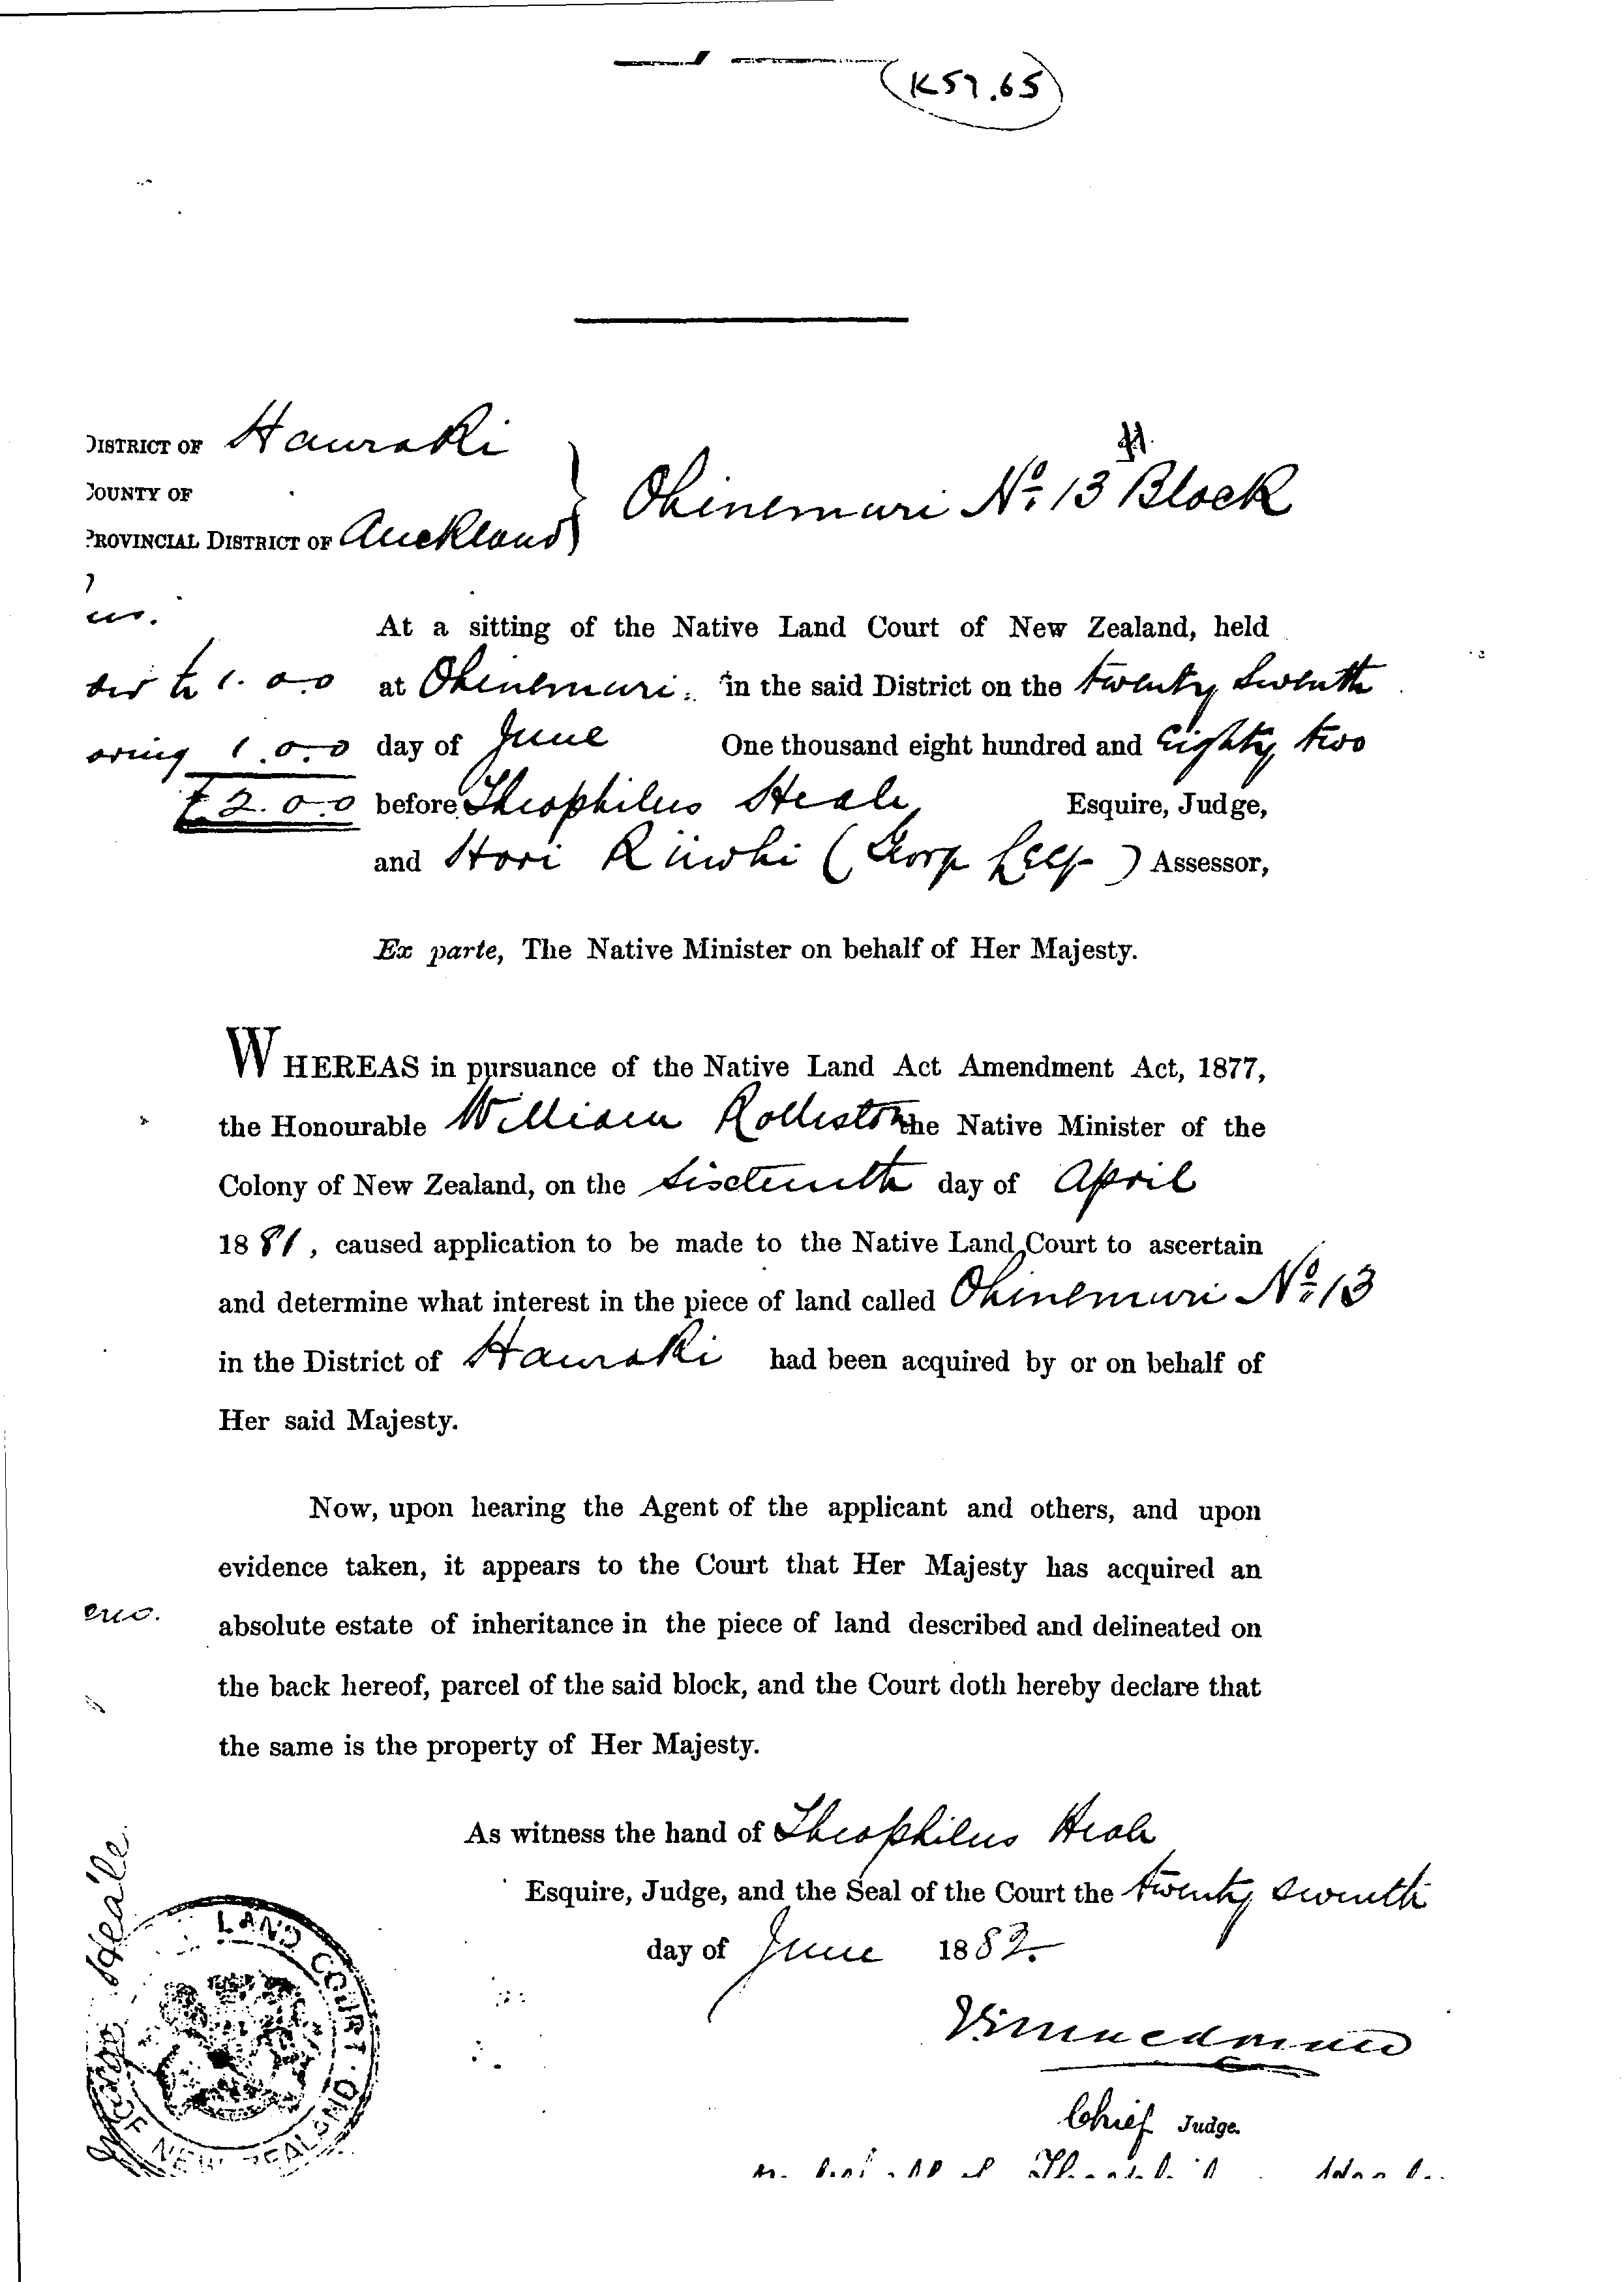 K57.65
DISTRICT OF Hauraki
COUNTY OF
PROVINCIAL DISTRICT OF Auckland
Ohinemuri No. 13 Block
At a sitting of the Native Land Court of New Zealand, held
1.0.0 at Ohinemuri in the said District on the twenty seventh
1.0.0 day of June One thousand eight hundred and Eighty two
£2.0.0 before Theophilus Heale Esquire, Judge,
and Hori ( ) Assessor,
Ex parte, The Native Minister on behalf of Her Majesty.
WHEREAS in pursuance of the Native Land Act Amendment Act, 1877,
the Honourable William Rolleston the Native Minister of the
Colony of New Zealand, on the sixteenth day of April
1881, caused application to be made to the Native Land Court to ascertain
and determine what interest in the piece of land called Ohinemuri No. 13
in the District of Hauraki had been acquired by or on behalf of
Her said Majesty.
Now, upon hearing the Agent of the applicant and others, and upon
evidence taken, it appears to the Court that Her Majesty has acquired an
absolute estate of inheritance in the piece of land described and delineated on
the back hereof, parcel of the said block, and the Court doth hereby declare that
the same is the property of Her Majesty.
As witness the hand of Theophilus Heale
Esquire, Judge, and the Seal of the Court the twenty seventh
day of June 1882.
Chief Judge.
Heale
LAND COURT OF NEW ZEALAND